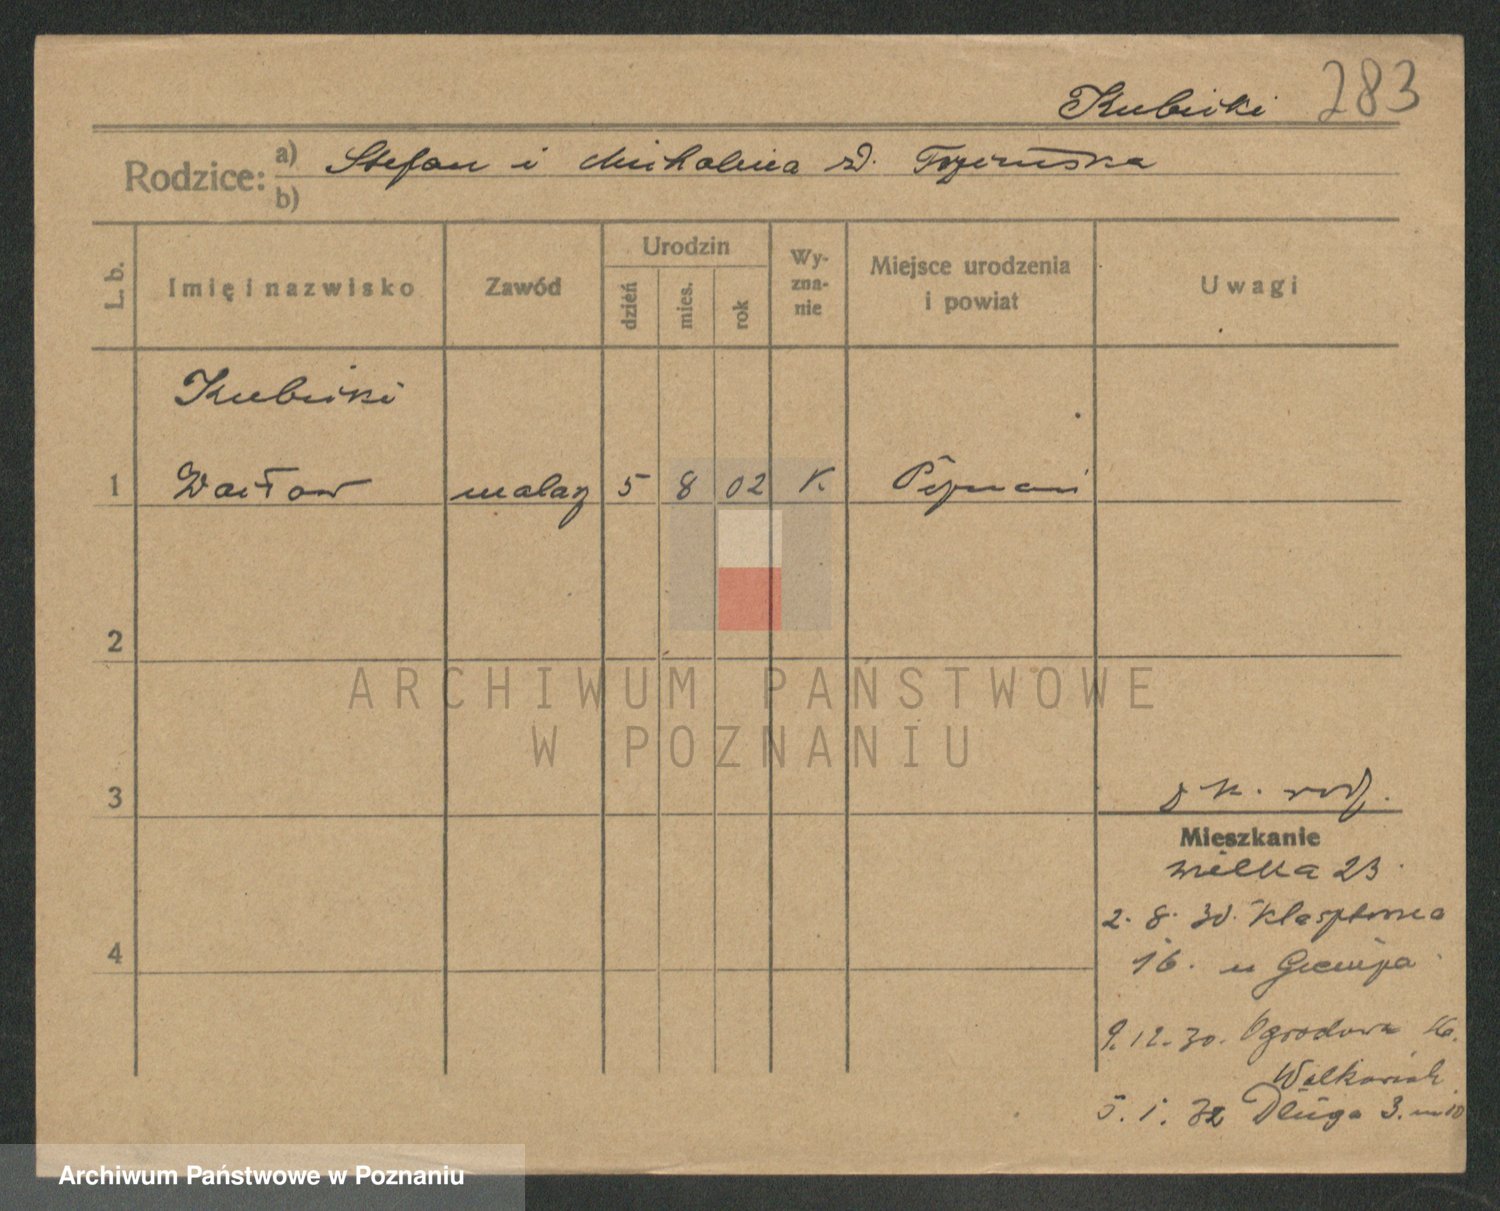 Kubicki 283
Rodzice: a) Stefan i Michalina z d.
b)
L. b.
Imię i nazwisko
Zawód
Urodzin
dzień
mies.
rok
Wy-
zna-
nie
Miejsce urodzenia
i powiat
Uwagi
Kubicki
1 Wacław malarz 5 8 02 K Poznań
2
ARCHIWUM PAŃSTWOWE
W POZNANIU
3
Mieszkanie
Wielka 23
2. 8. 30.
4
16. u
9. 12. 30. Ogrodowa
5. 1. 32 Długa 3. m 10
Archiwum Państwowe w Poznaniu